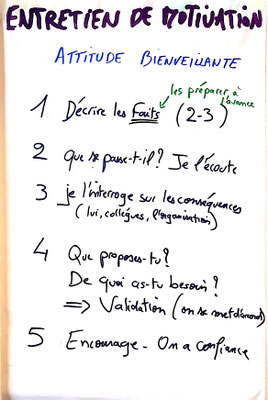 ENTRETIEN DE MOTIVATION
ATTITUDE BIENVEILLANTE
les préparer à l'avance
1 Décrire les Faits (2-3)
2 que se passe-t-il? Je l'écoute
3 je l'interroge sur les conséquences
(lui, collègues, l'organisation)
4 Que proposes-tu?
De quoi as-tu besoin?
⇒ Validation (on se met d'accord)
5 Encourage - On a confiance